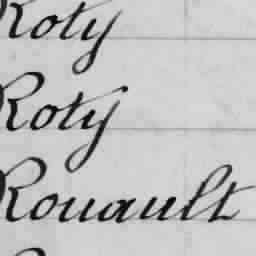 Roty
Roty
Rouault